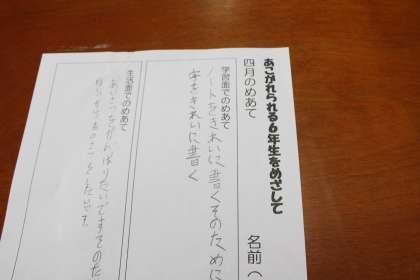 あこがれられる6年生をめざして
四月のめあて
名前（
学習面でのめあて
ノートをきれいに書くそのために
字をきれいに書く
生活面でのめあて
あいさつをがんばりたいですそのた